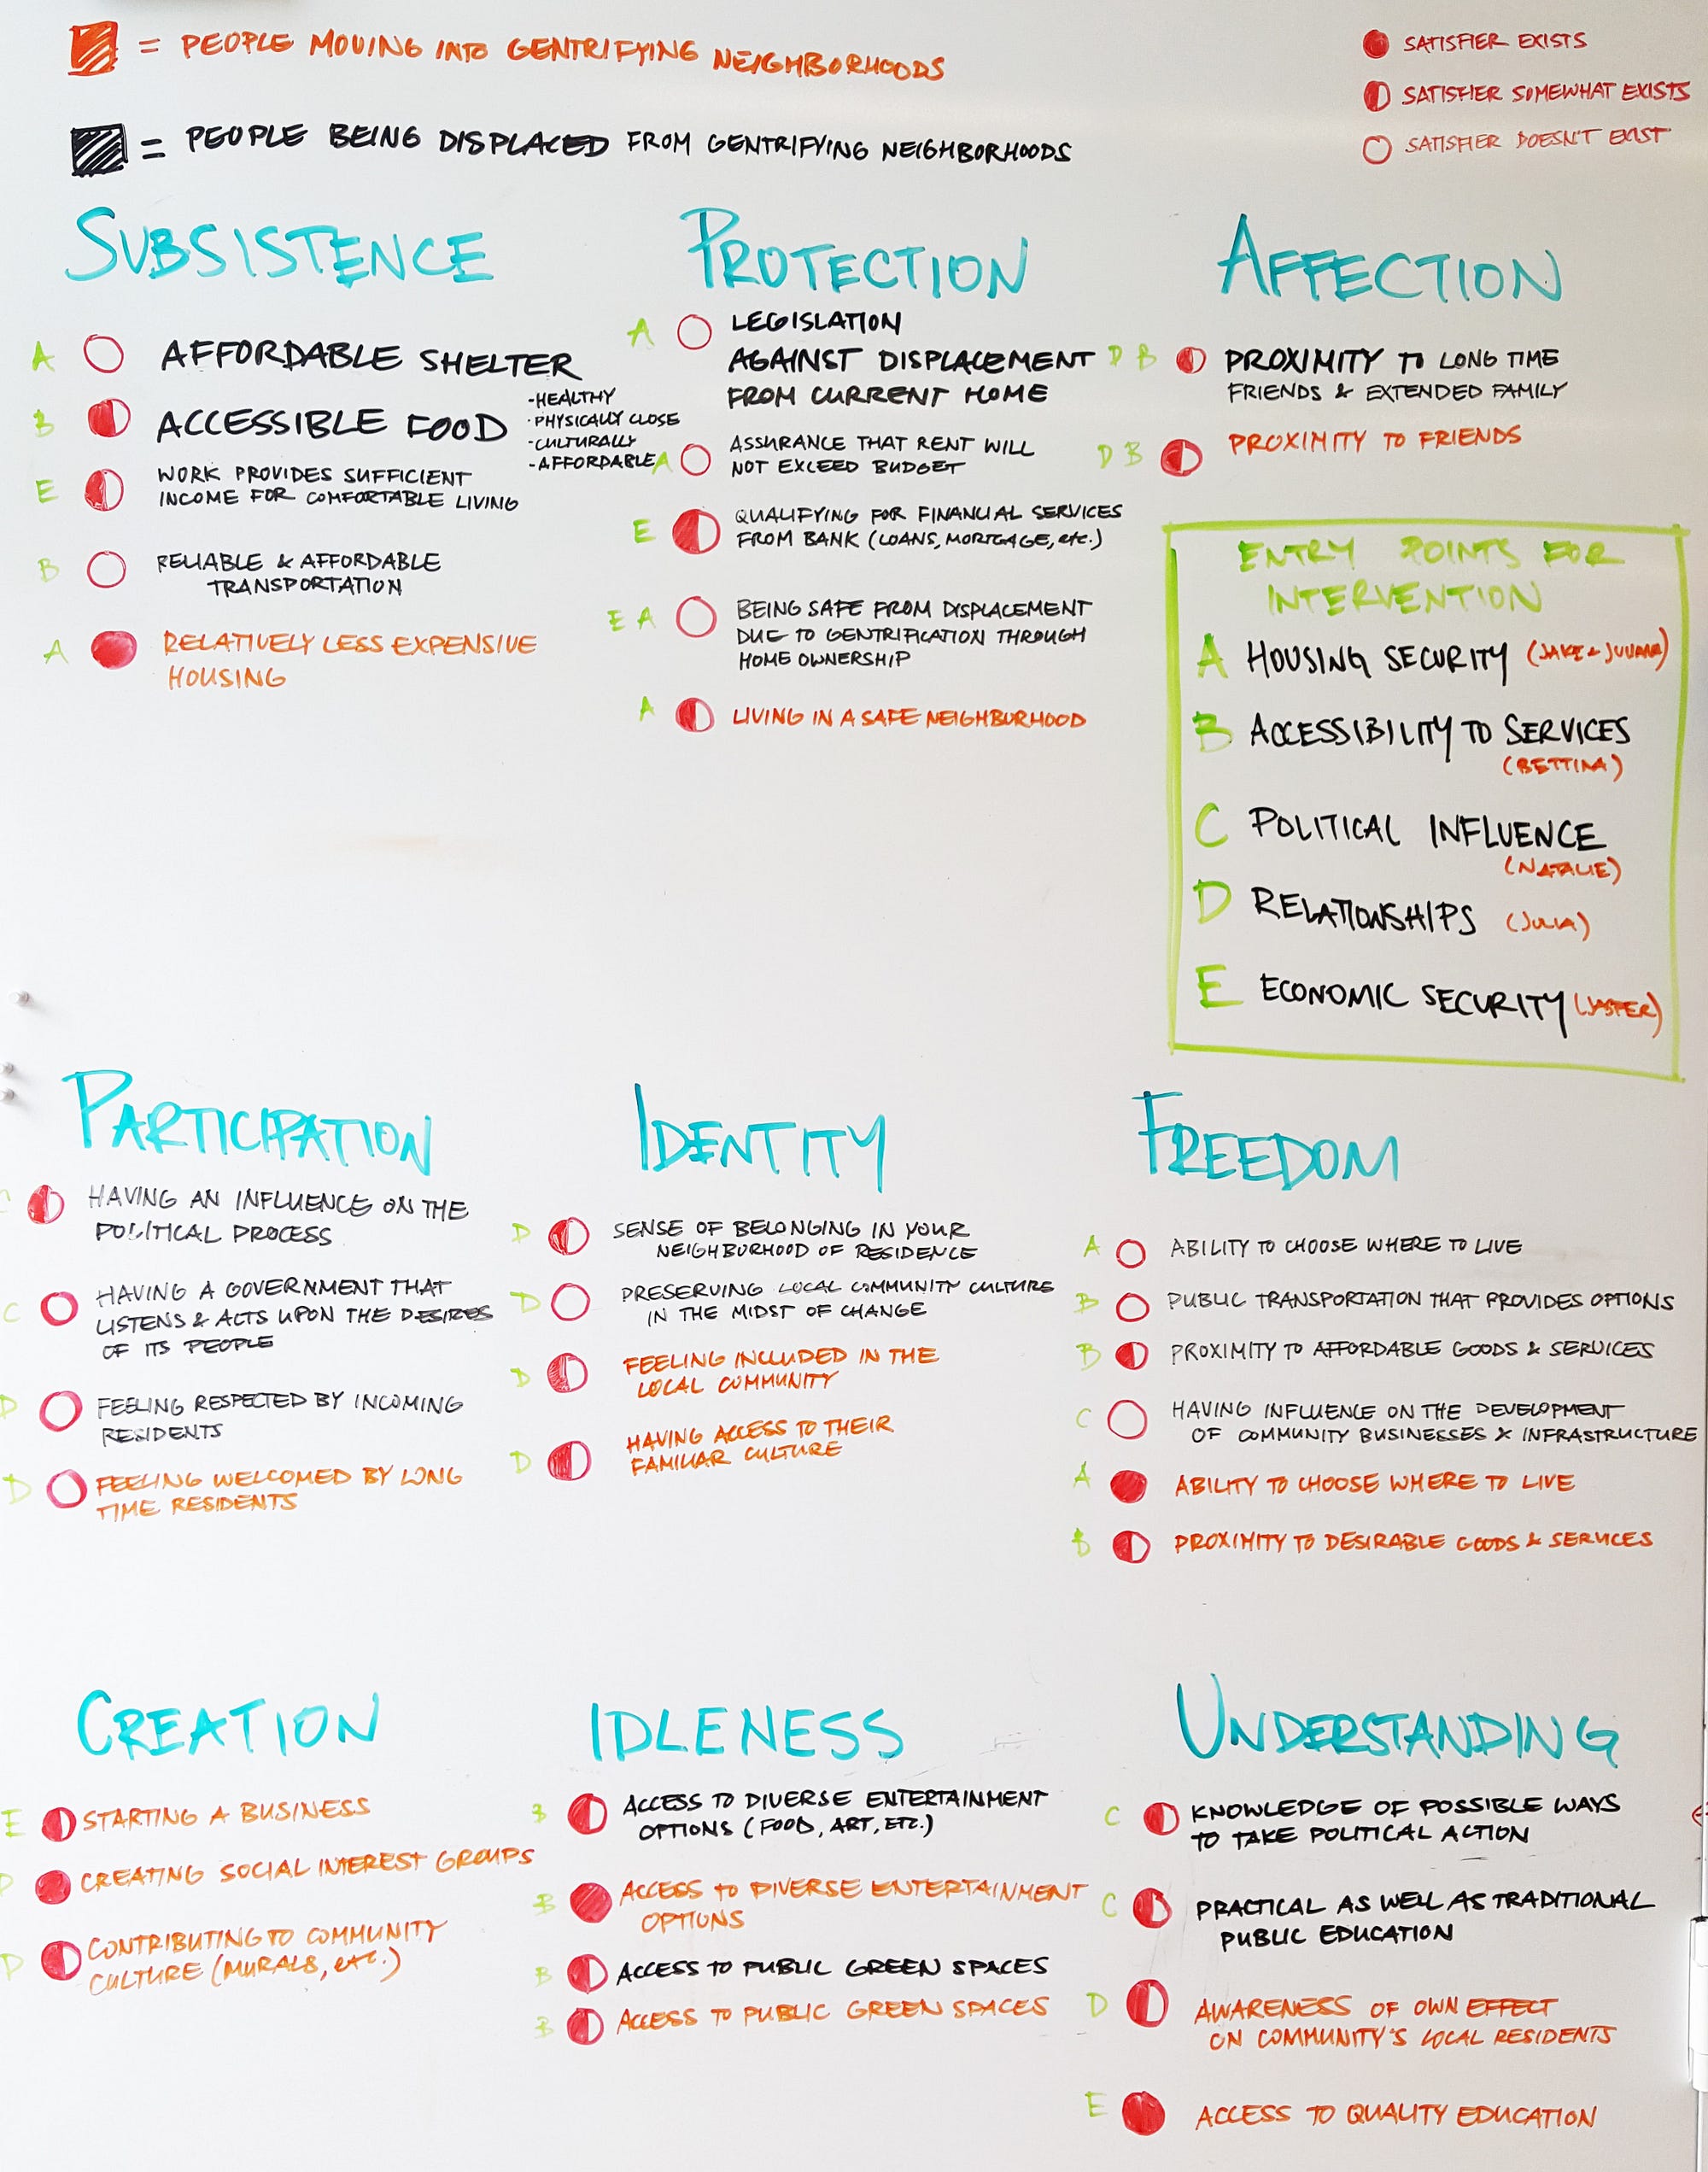 = PEOPLE MOVING INTO GENTRIFYING NEIGHBORHOODS
= PEOPLE BEING DISPLACED FROM GENTRIFYING NEIGHBORHOODS
SATISFIER EXISTS
SATISFIER SOMEWHAT EXISTS
SATISFIER DOESN'T EXIST
SUBSISTENCE
A AFFORDABLE SHELTER
B ACCESSIBLE FOOD
-HEALTHY
·PHYSICALLY CLOSE
-CULTURALLY
-AFFORDABLE
E WORK PROVIDES SUFFICIENT
INCOME FOR COMFORTABLE LIVING
B RELIABLE & AFFORDABLE
TRANSPORTATION
A RELATIVELY LESS EXPENSIVE
HOUSING
PROTECTION
A LEGISLATION
AGAINST DISPLACEMENT
FROM CURRENT HOME
A ASSURANCE THAT RENT WILL
NOT EXCEED BUDGET
E QUALIFYING FOR FINANCIAL SERVICES
FROM BANK (LOANS, MORTGAGE, etc.)
E A BEING SAFE FROM DISPLACEMENT
DUE TO GENTRIFICATION THROUGH
HOME OWNERSHIP
A LIVING IN A SAFE NEIGHBURHOOD
AFFECTION
D B PROXIMITY TO LONG TIME
FRIENDS & EXTENDED FAMILY
D B PROXIMITY TO FRIENDS
ENTRY POINTS FOR
INTERVENTION
A HOUSING SECURITY (JAKE + JULIANA)
B ACCESSIBILITY TO SERVICES
(BETTINA)
C POLITICAL INFLUENCE
(NATALIE)
D RELATIONSHIPS (JULIA)
E ECONOMIC SECURITY (JASPER)
PARTICIPATION
HAVING AN INFLUENCE ON THE
POLITICAL PROCESS
C HAVING A GOVERNMENT THAT
LISTENS & ACTS UPON THE DESIRES
OF ITS PEOPLE
D FEELING RESPECTED BY INCOMING
RESIDENTS
D FEELING WELCOMED BY LONG
TIME RESIDENTS
IDENTITY
D SENSE OF BELONGING IN YOUR
NEIGHBURHOOD OF RESIDENCE
D PRESERVING LOCAL COMMUNITY CULTURE
IN THE MIDST OF CHANGE
D FEELING INCLUDED IN THE
LOCAL COMMUNITY
D HAVING ACCESS TO THEIR
FAMILIAR CULTURE
FREEDOM
A ABILITY TO CHOOSE WHERE TO LIVE
B PUBLIC TRANSPORTATION THAT PROVIDES OPTIONS
B PROXIMITY TO AFFORDABLE GOODS & SERVICES
C HAVING INFLUENCE ON THE DEVELOPMENT
OF COMMUNITY BUSINESSES & INFRASTRUCTURE
A ABILITY TO CHOOSE WHERE TO LIVE
B PROXIMITY TO DESIRABLE GOODS & SERVICES
CREATION
E STARTING A BUSINESS
D CREATING SOCIAL INTEREST GROUPS
D CONTRIBUTING TO COMMUNITY
CULTURE (MURALS, etc.)
IDLENESS
B ACCESS TO DIVERSE ENTERTAINMENT
OPTIONS (FOOD, ART, ETC.)
B ACCESS TO DIVERSE ENTERTAINMENT
OPTIONS
B ACCESS TO PUBLIC GREEN SPACES
B ACCESS TO PUBLIC GREEN SPACES
UNDERSTANDING
C KNOWLEDGE OF POSSIBLE WAYS
TO TAKE POLITICAL ACTION
C PRACTICAL AS WELL AS TRADITIONAL
PUBLIC EDUCATION
D AWARENESS OF OWN EFFECT
ON COMMUNITY'S LOCAL RESIDENTS
E ACCESS TO QUALITY EDUCATION